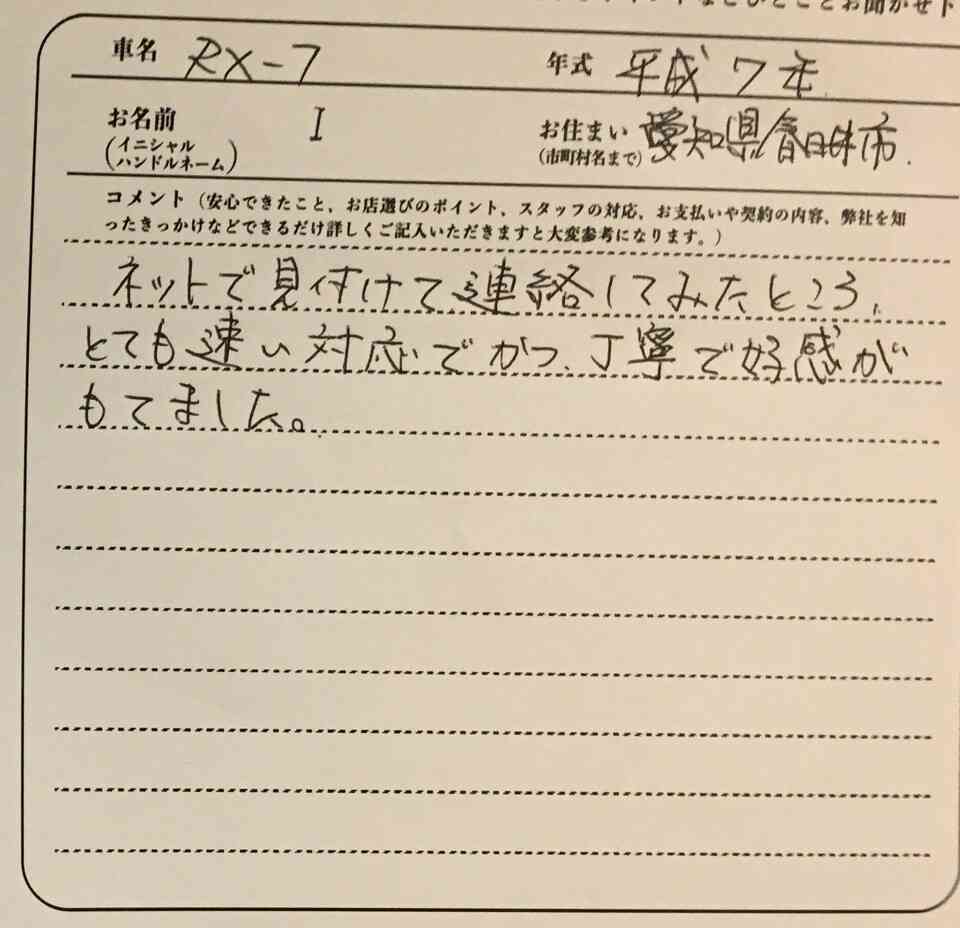 なとひとことお聞かせ下
車名 RX-7 年式 平成7年
お名前 I お住まい 愛知県春日井市.
(イニシャル (市町村名まで)
ハンドルネーム)
コメント(安心できたこと、お店選びのポイント、スタッフの対応、お支払いや契約の内容、弊社を知
ったきっかけなどできるだけ詳しくご記入いただきますと大変参考になります。)
ネットで見付けて連絡してみたところ、
とても速い対応でかつ、丁寧で好感が
もてました。